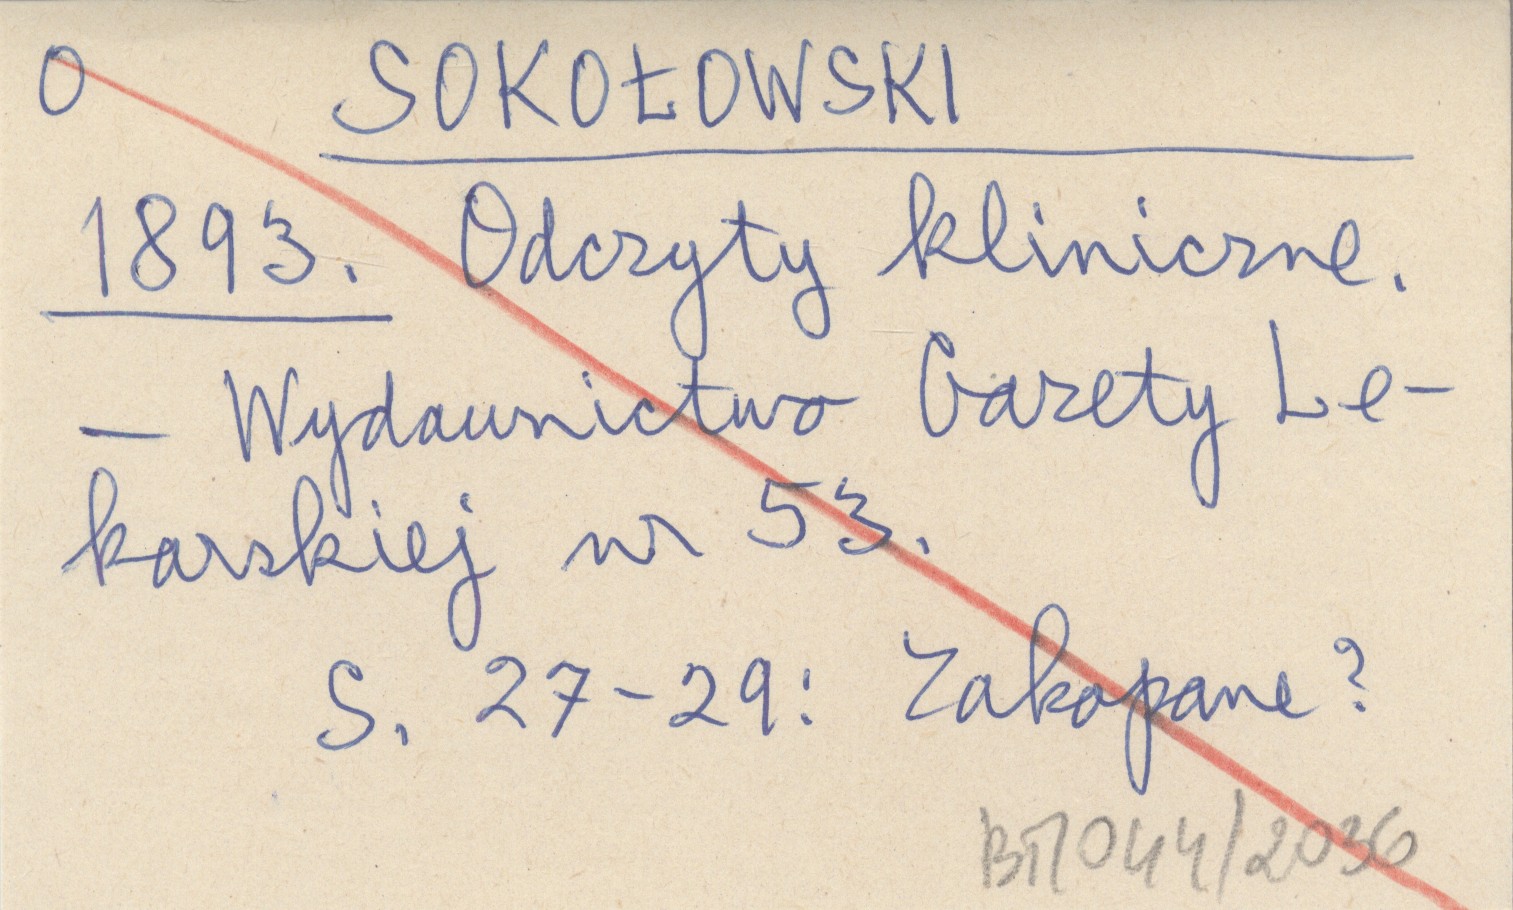 O SOKOŁOWSKI
1893. Odczyty kliniczne.
— Wydawnictwo Gazety Le-
karskiej nr 53.
S. 27-29: Zakopane?
BT/044/2036